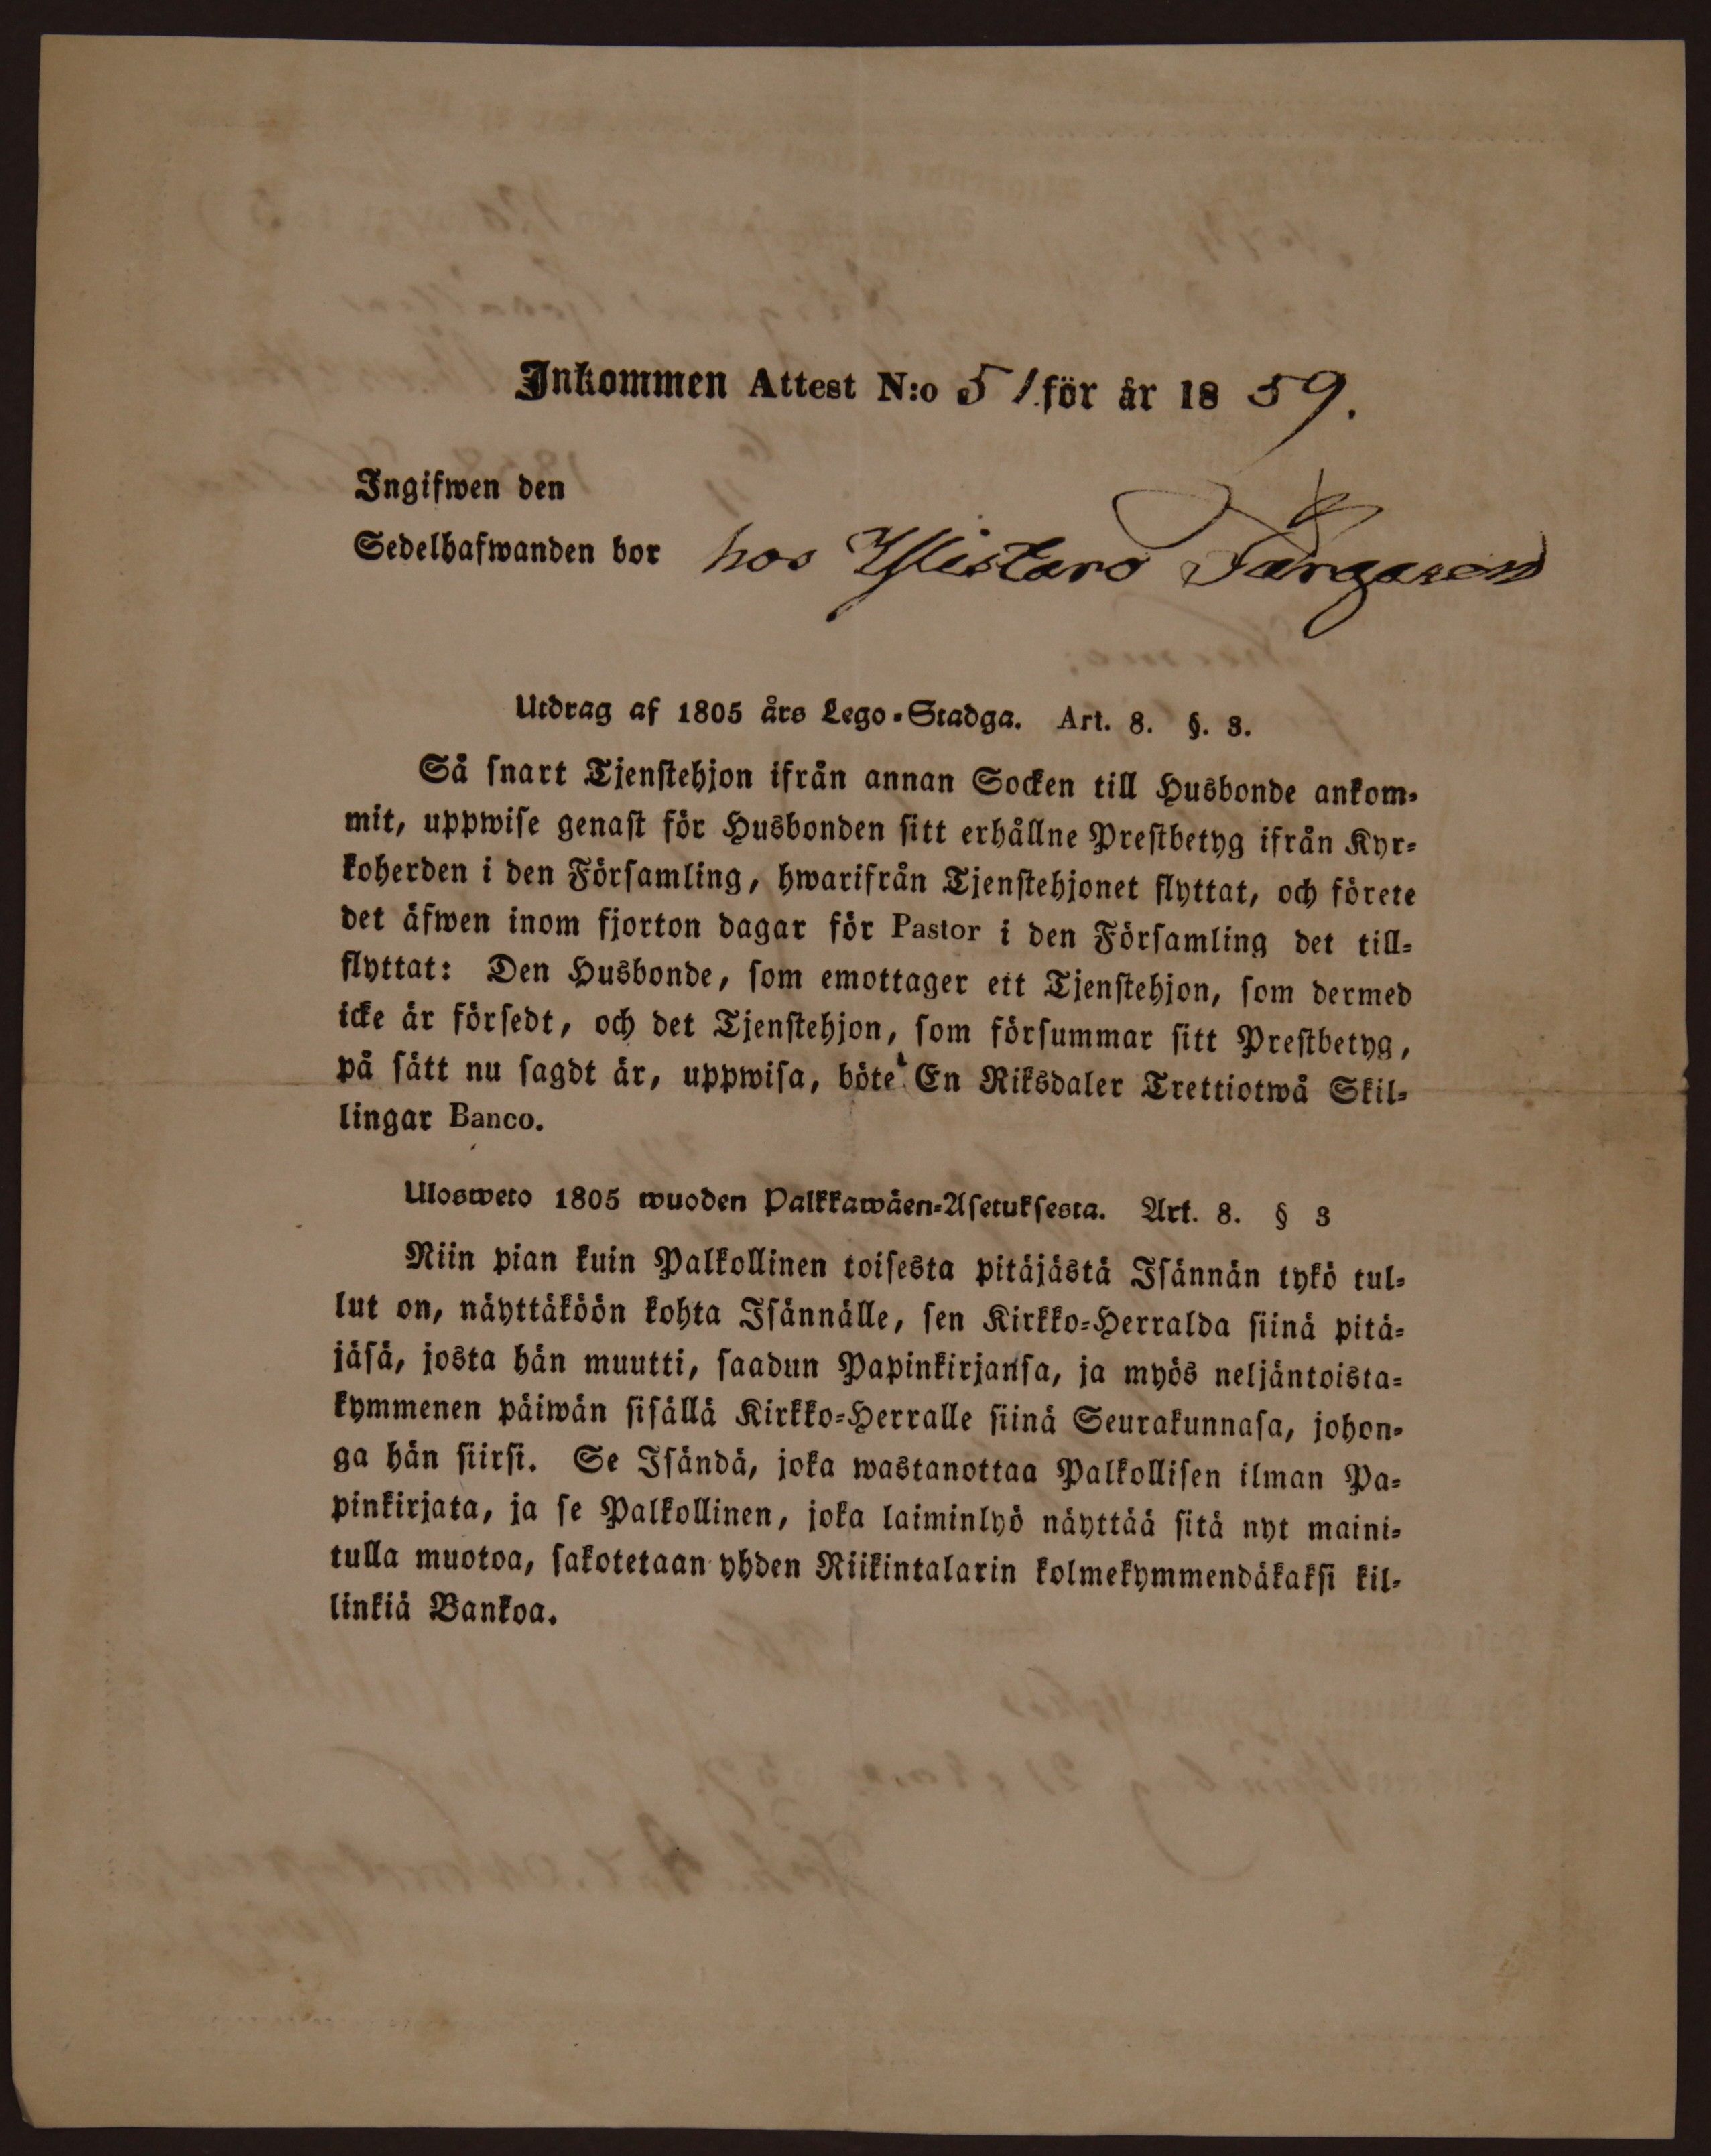 Inkommen Attest N:o 51. för år 1859.
Ingifwen den
Sedelhafwanden bor hos
Utdrag af 1805 års Lego-Stadga. Art. 8. §. 3.
Så snart Tjenstehjon ifrån annan Socken till Husbonde ankom-
mit, uppwise genast för Husbonden sitt erhållne Prestbetyg ifrån Kyr-
koherden i den Församling, hwarifrån Tjenstehjonet flyttat, och förete
det äfwen inom fjorton dagar för Pastor i den Församling det till-
flyttat: Den Husbonde, som emottager ett Tjenstehjon, som dermed
icke är försedt, och det Tjenstehjon, som försummar sitt Prestbetyg,
på sätt nu sagdt är, uppwisa, böte En Riksdaler Trettiotwå Skil-
lingar Banco.
Ulosweto 1805 wuoden Palkkawäen-Asetuksesta. Art. 8. § 3
Niin pian kuin Palkollinen toisesta pitäjästä Isännän tykö tul-
lut on, näyttäköön kohta Isännälle, sen Kirkko-Herralda siinä pitä-
jäsä, josta hän muutti, saadun Papinkirjansa, ja myös neljäntoista-
kymmenen päiwän sisällä Kirkko-Herralle siinä Seurakunnasa, johon-
ga hän siirsi. Se Isändä, joka wastanottaa Palkollisen ilman Pa-
pinkirjata, ja se Palkollinen, joka laiminlyö näyttää sitä nyt maini-
tulla muotoa, sakotetaan yhden Riikintalarin kolmekymmendäkaksi kil-
linkiä Bankoa.